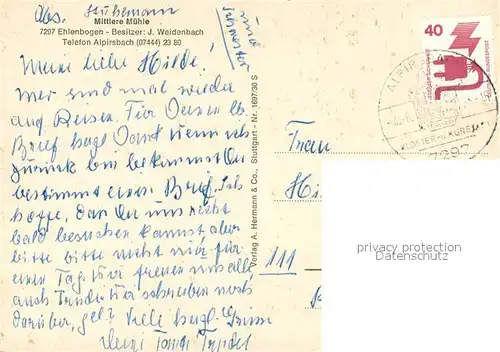 Abs. Stuhemann
Mittlere Mühle
7297 Ehlenbogen - Besitzer: J. Weidenbach
Telefon Alpirsbach (07444) 23 80
Meine liebe Hilde!
wir sind mal wieder
auf Reisen. Für Deinen lb.
Brief hzgl. Dank wenn ich
zurück bin bekommst Du
bestimmt einen Brief. Ich
hoffe, dass Du uns recht
bald besuchen kannst, aber
bitte bitte nicht nur für
einen Tag. Wir freuen uns alle,
auch Trude. Wir schreiben noch
darüber, gel? Viele hzgl. Grüsse
Deine Tante
Verlag A. Hermann & Co., Stuttgart - Nr. 1697/30 S
40
ALPIRSBACH
KLOSTER- U. KURSTADT
7297
Frau
Hi
111
privacy protection
Datenschutz